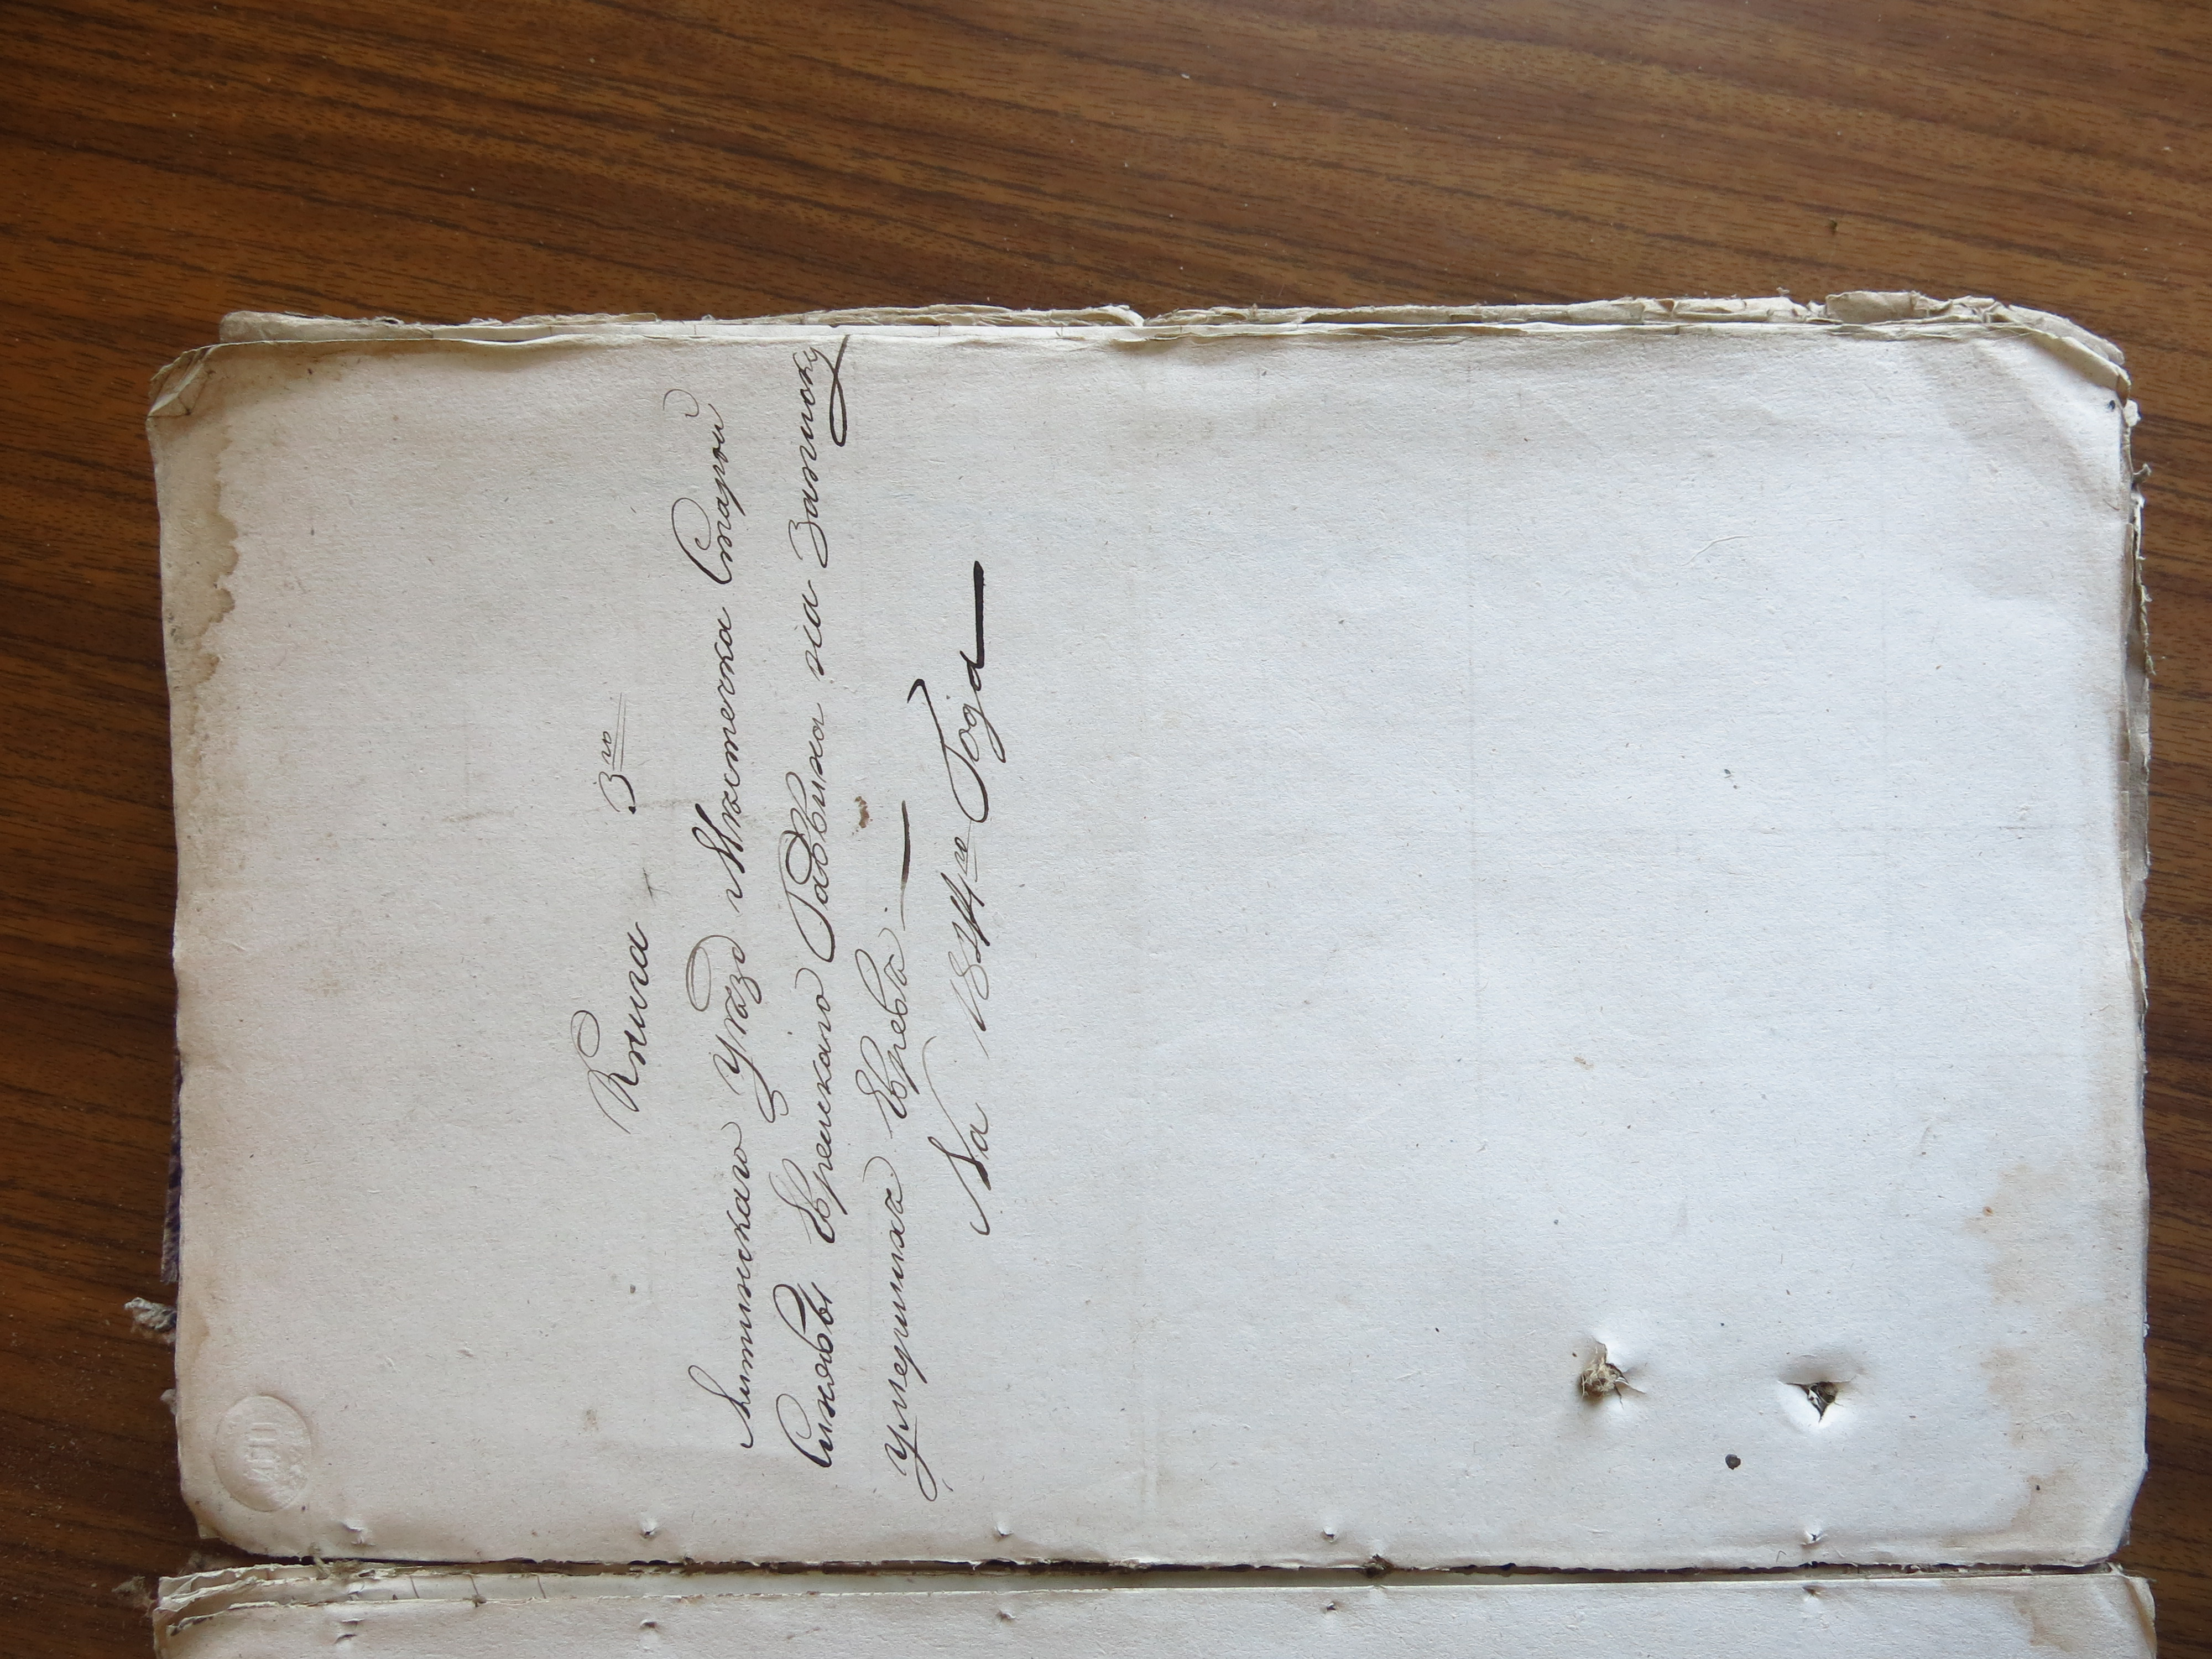 Книга 3я
Литинскаго Уѣзда Мѣстечка Старой
Синявы Еврейскаго Раввина на Записку
умершихъ Евреевъ
На 1874го Года